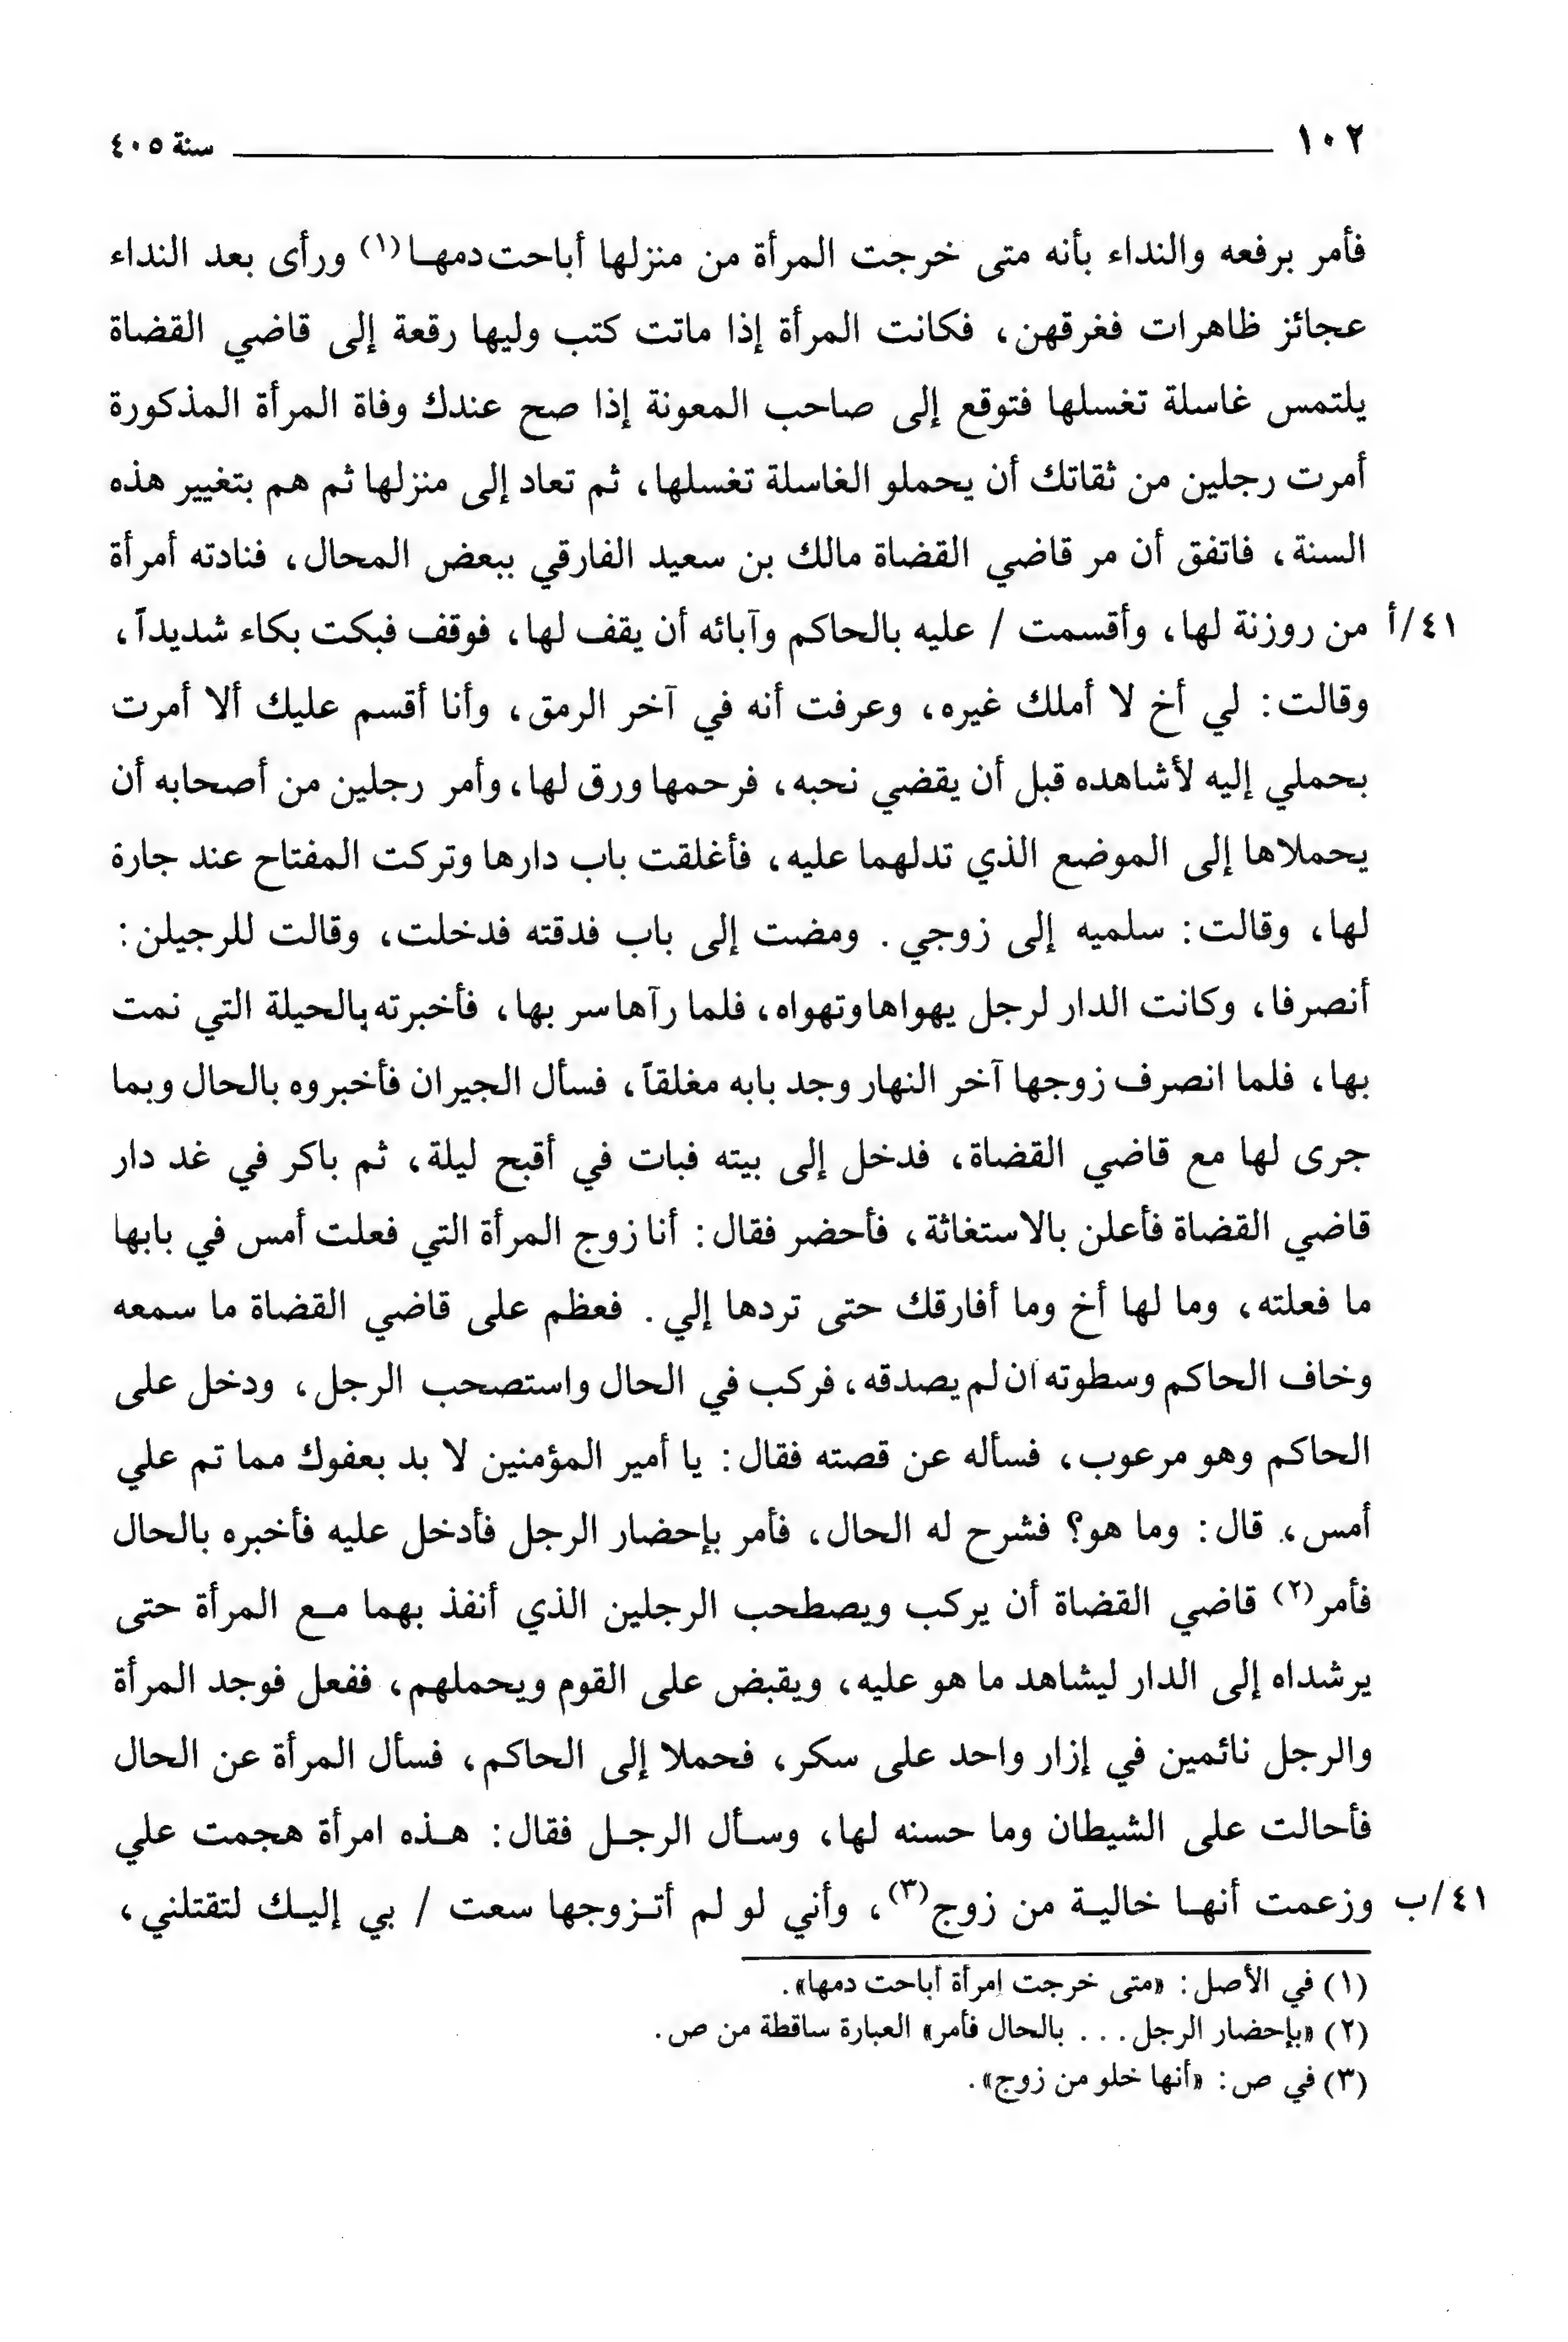 ١٠٢ سنة ٤٠٥
فأمر برفعه والنداء بأنه متى خرجت المرأة من منزلها أباحت دمهـا(١) ورأى بعد النداء
عجائز ظاهرات فغرقهن، فكانت المرأة إذا ماتت كتب وليها رقعة إلى قاضي القضاة
يلتمس غاسلة تغسلها فتوقع إلى صاحب المعونة إذا صح عندك وفاة المرأة المذكورة
أمرت رجلين من ثقاتك أن يحملو الغاسلة تغسلها، ثم تعاد إلى منزلها ثم هم بتغيير هذه
السنة، فاتفق أن مر قاضي القضاة مالك بن سعيد الفارقي ببعض المحال، فنادته أمرأة
٤١/أ من روزنة لها، وأقسمت / عليه بالحاكم وآبائه أن يقف لها، فوقف فبكت بكاء شديداً،
وقالت: لي أخ لا أملك غيره، وعرفت أنه في آخر الرمق، وأنا أقسم عليك ألا أمرت
بحملي إليه لأشاهده قبل أن يقضي نحبه، فرحمها ورق لها، وأمر رجلين من أصحابه أن
يحملاها إلى الموضع الذي تدلهما عليه، فأغلقت باب دارها وتركت المفتاح عند جارة
لها، وقالت: سلميه إلى زوجي. ومضت إلى باب فدقته فدخلت، وقالت للرجيلن:
أنصرفا، وكانت الدار لرجل يهواها وتهواه، فلما رآها سر بها، فأخبرته بالحيلة التي نمت
بها، فلما انصرف زوجها آخر النهار وجد بابه مغلقاً، فسأل الجيران فأخبروه بالحال وبما
جرى لها مع قاضي القضاة، فدخل إلى بيته فبات في أقبح ليلة، ثم باكر في غد دار
قاضي القضاة فأعلن بالاستغاثة، فأحضر فقال: أنا زوج المرأة التي فعلت أمس في بابها
ما فعلته، وما لها أخ وما أفارقك حتى تردها إلي. فعظم على قاضي القضاة ما سمعه
وخاف الحاكم وسطوته ان لم يصدقه، فركب في الحال واستصحب الرجل، ودخل على
الحاكم وهو مرعوب، فسأله عن قصته فقال: يا أمير المؤمنين لا بد بعفوك مما تم علي
أمس، قال: وما هو؟ فشرح له الحال، فأمر بإحضار الرجل فأدخل عليه فأخبره بالحال
فأمر(٢) قاضي القضاة أن يركب ويصطحب الرجلين الذي أنفذ بهما مـع المرأة حتى
يرشداه إلى الدار ليشاهد ما هو عليه، ويقبض على القوم ويحملهم، ففعل فوجد المرأة
والرجل نائمين في إزار واحد على سكر، فحملا إلى الحاكم، فسأل المرأة عن الحال
فأحالت على الشيطان وما حسنه لها، وسـأل الرجـل فقال: هـذه امرأة هجمت علي
٤١/ب وزعمت أنهـا خاليـة من زوج(٣)، وأني لو لم أتـزوجها سعت / بي إليـك لتقتلني،
(١) في الأصل: «متى خرجت إمرأة أباحت دمها».
(٢) «بإحضار الرجل... بالحال فأمر» العبارة ساقطة من ص.
(٣) في ص: «أنها خلو من زوج».